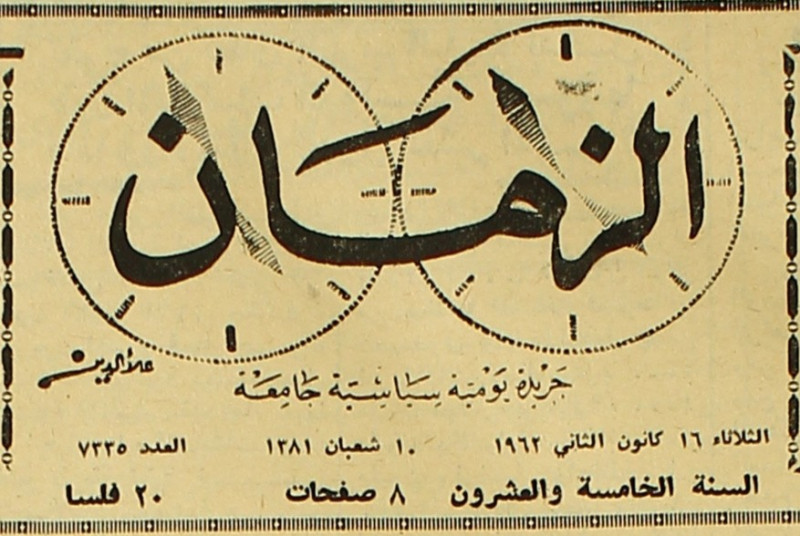 الزمان
علاءالدين
جريدة يومية سياسية جامعة
الثلاثاء ١٦ كانون الثاني ١٩٦٢ ١٠ شعبان ١٣٨١ العدد ٧٣٣٥
السنة الخامسة والعشرون ٨ صفحات ٢٠ فلسا